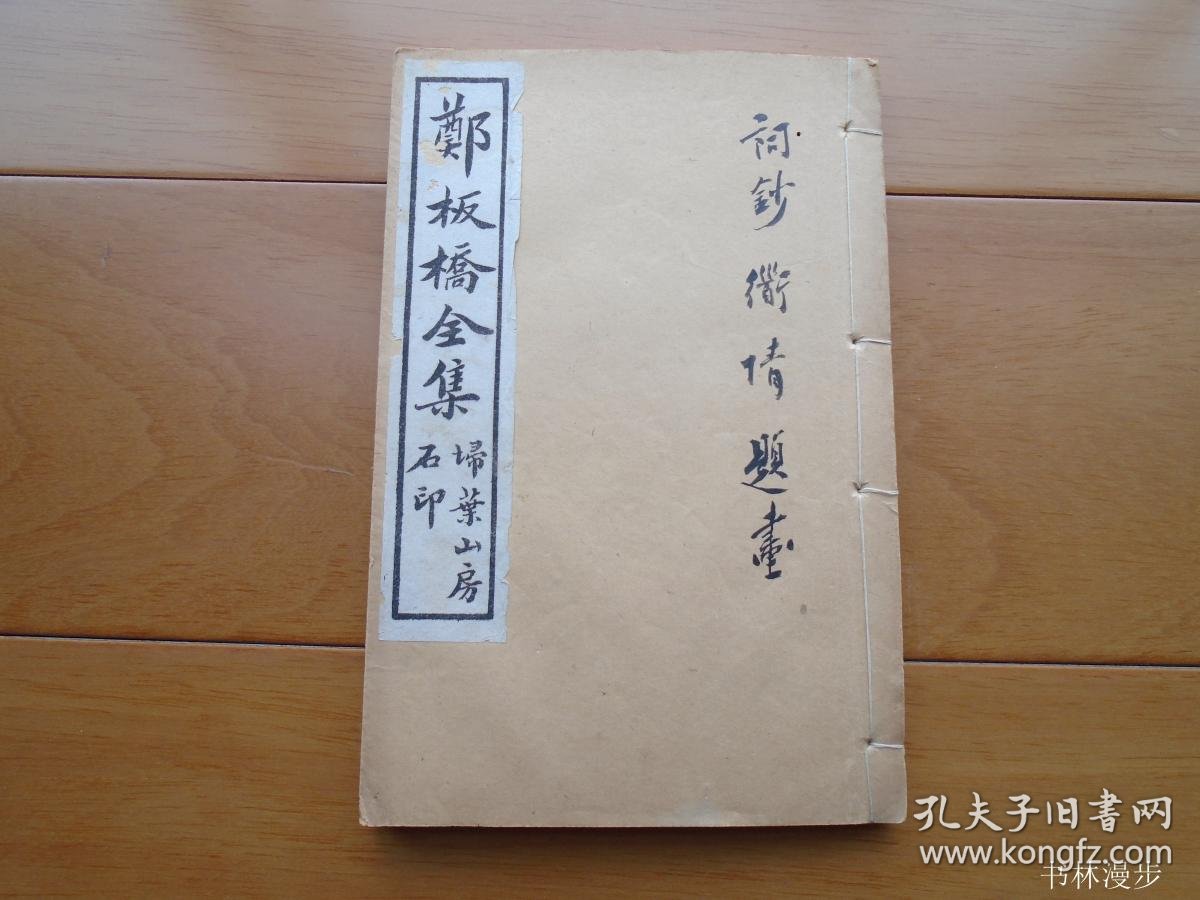 詞鈔 衜情 題畫
鄭板橋全集
埽葉山房
石印
孔夫子旧书网
www.kongfz.com
书林漫步